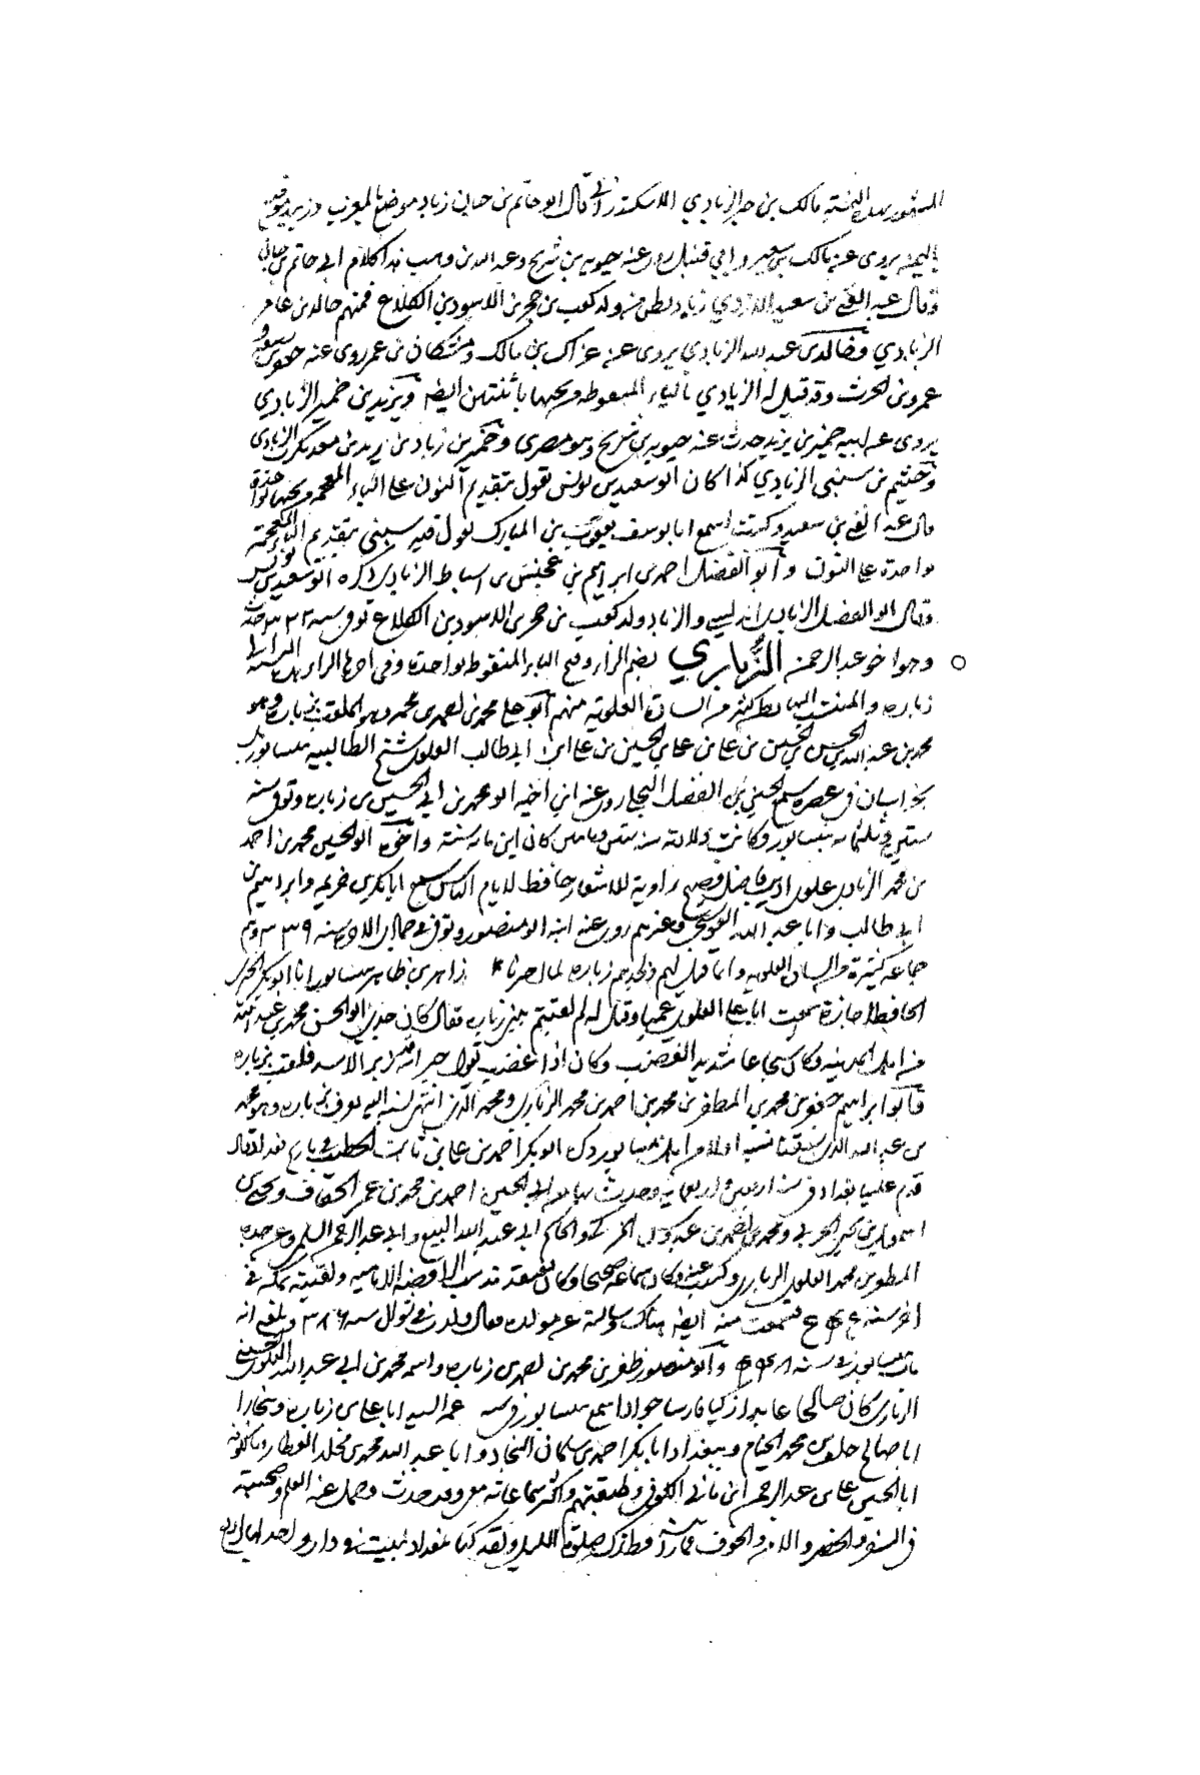 المشهور بهذه النسبة مالك بن خير الزبادي الاسكندراني قال ابو حاتم بن حبان زباد موضع بالمغرب
يروى عن مالك بن سعد وابي قبيل روى عنه حيوة بن شريح وعبد الله بن وهب هذا كلام ابى حاتم بن حبان
وقال عبد الغني بن سعيد الازدي زباد بطن من ولد كعب بن حجر بن الاسود بن الكلاع فمنهم خالد بن عامر
الزبادي وخالد بن عبد الله الزبادي يروى عن عراك بن مالك ومشكان بن عمرو روى عنه
عمرو بن الحرث وقد قيل له الزيادي بالياء المنقوطة من تحتها باثنتين ايضا ويزيد بن خمير الزبادي
يروى عن ابيه خمير بن يزيد حدث عنه حيوة بن شريح وهو مصرى وخمير بن زباد بن يزيد بن معديكرب الزبادى
وخثيم بن سبنى الزبادي كذا كان ابو سعيد بن يونس يقول بتقديم النون على الباء المعجمة من تحتها بواحدة
قال عبد الغني بن سعيد وكنت اسمع ابا يوسف يعقوب بن المبارك يقول فيه سبنى بتقديم الباء المعجمة
بواحدة على النون وابو الفضل احمد بن ابراهيم بن عجنس بن اسباط الزبادي ذكره ابو سعيد بن يونس
وقال ابو الفضل الزبادي اندلسى والزباد ولد كعب بن حجر بن الاسود بن الكلاع توفى سنة ٣٢٢
وهو اخو عبد الرحمن الزُّباري بضم الزاء وفتح الباء المنقوطة بواحدة وفى اخرها الراء هذه النسبة الى
زبارة والمنتسب اليها بطن كبير من السادة العلوية منهم ابو على محمد بن احمد بن محمد وهو الملقب بزبارة وهو
محمد بن عبد الله بن الحسن بن الحسين بن على بن على بن الحسين بن على بن ابى طالب العلوى شيخ الطالبية بنيسابور بل
بخراسان فى عصره سمع الحسين بن الفضل البجلى روى عنه ابن اخيه ابو محمد بن ابى الحسين بن زبارة وتوفى سنة
ستين وثلثمائة بنيسابور وكانت ولادته سنة ستين ومائتين كان ابن مائة سنة واخوه ابو الحسين محمد بن احمد
بن محمد الزبارى علوى اديب فاضل فصيح راوية للاشعار حافظ لايام الناس سمع ابا بكر بن خزيمة وابراهيم بن
ابى طالب وابا عبد الله البوشنجي وغيرهم روى عنه ابنه ابو منصور وتوفى فى جمادى الاخرة سنة ٣٣٩ وثم
جماعة كثيرة من السادة العلوية وانما قيل لهم ولجدهم زبارة لما اخبرنا زاهر بن طاهر بنيسابور انا ابو بكر
الحافظ اجازة سمعت ابا على العلوى عمنا وقيل له لم لقبتم ببنى زبارة فقال كان جدى ابو الحسن محمد بن عبد الله
من اهل المدينة وكان شجاعا شديد الغضب وكان اذا غضب يقول جيرانه قد زبر الاسد فلقب بزبارة
وابو ابراهيم جعفر بن محمد بن المظفر بن محمد بن احمد بن محمد الزبارى ومحمد الذى انتهى نسبه اليه يعرف بزبارة وهو محمد
بن عبد الله الذى سقنا نسبه اولا من اهل نيسابور ذكره ابو بكر احمد بن على بن ثابت الخطيب فى تاريخ بغداد قال
قدم علينا بغداد فى سنة اربعين واربعمائة وحدث بها عن ابى الحسين احمد بن محمد بن عمر الخفاف ويحيى بن
اسمعيل بن يحيى الحربى ومحمد بن احمد بن عبدوس المزكى والحاكم ابى عبد الله البيع وابى عبد الرحمن السلمى وعن جده
المظفر بن محمد العلوى الزبارى وكتبت عنه وكان سماعه صحيحا وكان يعتقد مذهب الرافضة الامامية ولقيته بمكة فى
اخر سنة ٤٤٥ فسمعت منه ايضا هناك وسألته عن مولده فقال ولدت فى شوال سنة ٣٨٦ وبلغنى انه
مات بنيسابور فى سنة ٤٤٨ وابو منصور ظفر بن محمد بن احمد بن زبارة واسمه محمد بن ابى عبد الله العلوى الحسينى
الزبارى كان صالحا عابدا زكيا فارسا جوادا سمع بنيسابور عمه السيد ابا على بن زبارة وببخارا
ابا صالح خلف بن محمد الخيام وببغداد ابا بكر احمد بن سلمان النجاد وابا عبد الله محمد بن مخلد العطار وبالكوفة
ابا الحسين على بن عبد الرحمن ابن ماتى الكوفى وطبقتهم واكثر سماعاته معروفة حدث وحمل عنه العلم وصحبته
فى السفر والحضر والامن والخوف فما رأيته قط ترك صلوة الليل ولقد كنا ببغداد نبيت فى دار واحدة